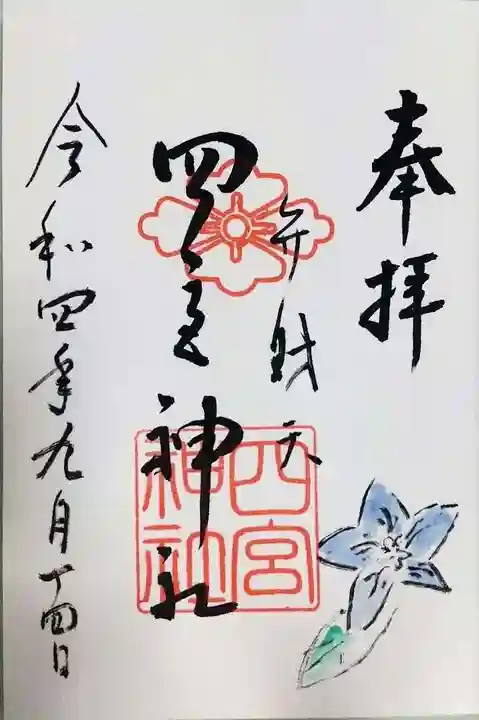 奉拝
弁財天
四宮神社
四宮
神社
令和四年九月十四日